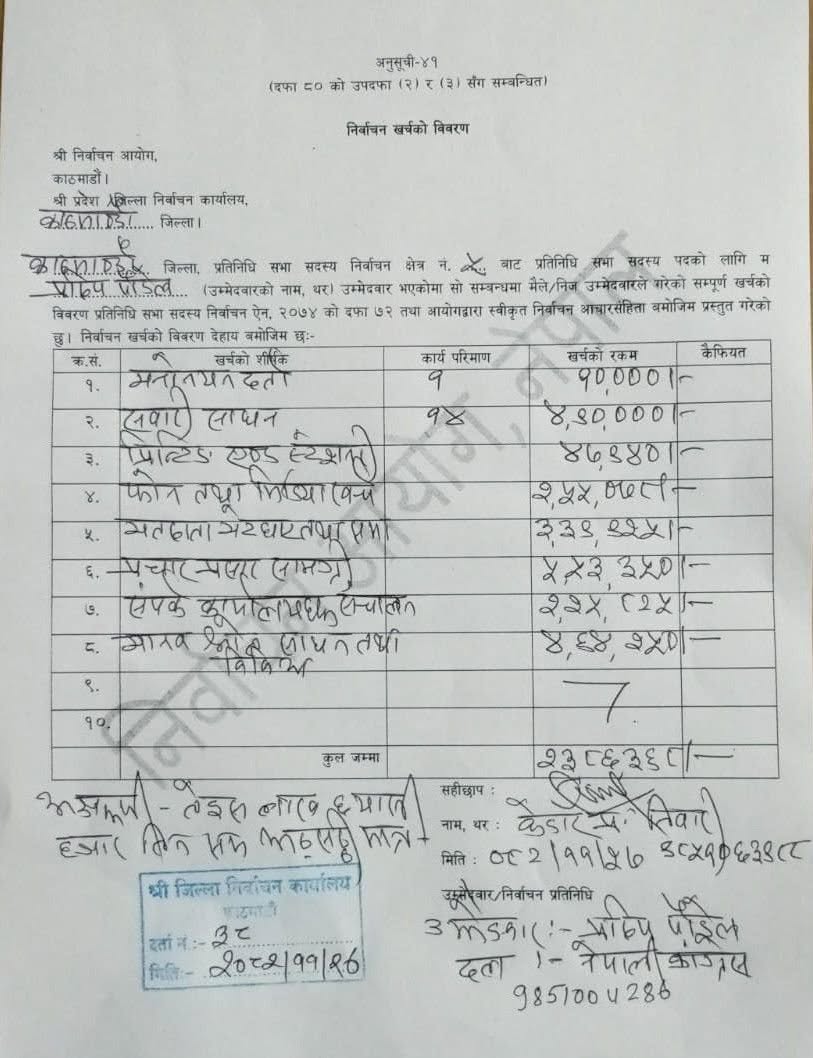 अनुसूची-४१
(दफा ८० को उपदफा (२) र (३) सँग सम्बन्धित)
निर्वाचन खर्चको विवरण
श्री निर्वाचन आयोग,
काठमाडौं।
श्री प्रदेश /जिल्ला निर्वाचन कार्यालय,
काठमाण्डौ..... जिल्ला।
काठमाण्डौ जिल्ला, प्रतिनिधि सभा सदस्य निर्वाचन क्षेत्र नं. ५ बाट प्रतिनिधि सभा सदस्य पदको लागि म
प्रदिप पौडेल (उम्मेदवारको नाम, थर) उम्मेदवार भएकोमा सो सम्बन्धमा मैले/निज उम्मेदवारले गरेको सम्पूर्ण खर्चको
विवरण प्रतिनिधि सभा सदस्य निर्वाचन ऐन, २०७४ को दफा ७२ तथा आयोगद्वारा स्वीकृत निर्वाचन आचारसंहिता बमोजिम प्रस्तुत गरेको
छु। निर्वाचन खर्चको विवरण देहाय बमोजिम छः-
क्र.सं. खर्चको शीर्षक कार्य परिमाण खर्चको रकम कैफियत
१. मनोनयन दर्ता १ १०,०००।-
२. सवारी साधन १४ ४,९०,०००।-
३. प्रिन्टिङ एण्ड स्टेशनरी ४७,९४०।-
४. फोन तथा मिडिया खर्च २,५५,०७८।-
५. मतदाता तथा सभा ३,३९,९२५।-
६. प्रचार प्रसार सामग्री ५,५३,३५०।-
७. संपर्क कार्यालय संचालन २,२५,८२५।-
८. मानव श्रोत साधन तथा ४,६४,२५०।-
विविध
९.
१०.
कुल जम्मा २३८६३६८।-
अक्षरूपी - तेइस लाख छयासी
हजार तिन सय अठ्सठ्ठी मात्र
सहीछाप :
नाम, थर: केदार प्र. तिवारी
मिति : ०८२/११/२७ ९८५१०६३९८८
उम्मेदवार/निर्वाचन प्रतिनिधि
उम्मेदवार :- प्रदिप पौडेल
दल :- नेपाली कांग्रेस
9851004286
श्री जिल्ला निर्वाचन कार्यालय
काठमाडौं
दर्ता नं :- ३८
मिति:- २०८२/११/२७
निर्वाचन आयोग, नेपाल